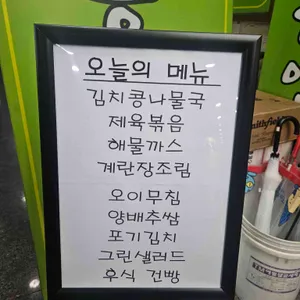 오늘의 메뉴
김치콩나물국
제육볶음
해물까스
계란장조림
오이무침
양배추쌈
포기김치
그린샐러드
후식 건빵
smithfield